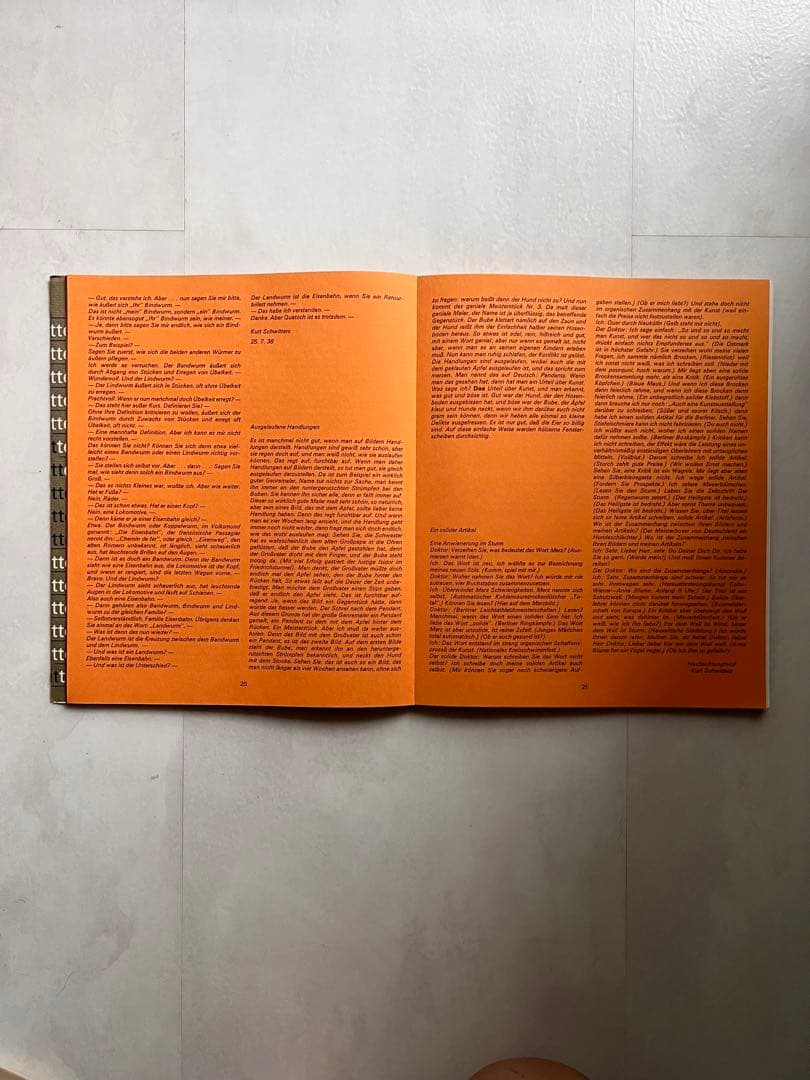 — Gut, das verstehe ich. Aber . . . nun sagen Sie mir bitte,
wie äußert sich „Ihr" Bindwurm. —
Das ist nicht „mein" Bindwurm, sondern „ein" Bindwurm.
Es könnte ebensogut „Ihr" Bindwurm sein, wie meiner. —
— Ja, dann bitte sagen Sie mir endlich, wie sich ein Bind-
wurm äußert. —
Verschieden. —
— Zum Beispiel? —
Sagen Sie zuerst, wie sich die beiden anderen Würmer zu
äußern pflegen. —
Ich werde es versuchen. Der Bandwurm äußert sich
durch Abgang von Stücken und Erregen von Übelkeit. —
Wundervoll. Und der Lindwurm? —
— Der Lindwurm äußert sich in Stücken, oft ohne Übelkeit
zu erregen. —
Prachtvoll. Wenn er nun manchmal doch Übelkeit erregt? —
— Das steht hier außer Kurs. Definieren Sie! —
Ohne Ihre Definition kritisieren zu wollen, äußert sich der
Bindwurm durch Zuwachs von Stücken und erregt oft
Übelkeit, oft nicht. —
— Eine mannhafte Definition. Aber ich kann es mir nicht
recht vorstellen. —
Das können Sie nicht? Können Sie sich denn etwa viel-
leicht einen Bandwurm oder einen Lindwurm richtig vor-
stellen? —
— Sie stellen sich selbst vor. Aber . . . dann . . . . Sagen Sie
mal, wie sieht denn solch ein Bindwurm aus? —
Groß. —
— Das es nichts Kleines war, wußte ich. Aber wie weiter.
Hat er Füße? —
Nein, Räder. —
— Das ist schon etwas. Hat er einen Kopf? —
Nein, eine Lokomotive. —
— Dann käme er ja einer Eisenbahn gleich? —
Etwa. Der Bindwurm oder Koppelwurm, im Volksmund
genannt: „Die Eisenbahn", der französische Passagier
nennt ihn: „Chemin de fer", oder gleich: „Eisenweg", den
alten Römern unbekannt, ist länglich, sieht schauervoll
aus, hat leuchtende Brillen auf den Augen. —
— Dann ist es doch ein Bandwurm. Denn der Bandwurm
sieht wie eine Eisenbahn aus, die Lokomotive ist der Kopf,
und wenn er rangiert, sind die letzten Wagen vorne. —
Bravo. Und der Lindwurm?
— Der Lindwurm sieht schauervoll aus, hat leuchtende
Augen in der Lokomotive und läuft auf Schienen. —
Also auch eine Eisenbahn. —
— Dann gehören also Bandwurm, Bindwurm und Lind-
wurm zu der gleichen Familie? —
— Selbstverständlich, Familie Eisenbahn. Übrigens denken
Sie einmal an das Wort: „Landwurm". —
— Was ist denn das nun wieder? —
Der Landwurm ist die Kreuzung zwischen dem Bandwurm
und dem Lindwurm. —
— Und was ist ein Landwurm? —
Ebenfalls eine Eisenbahn. —
— Und was ist der Unterschied? —
Der Landwurm ist die Eisenbahn, wenn Sie ein Retour-
billett nehmen. —
— Das habe ich verstanden. —
Danke. Aber Quatsch ist es trotzdem. —
Kurt Schwitters
25. 7. 36
Ausgelaufene Handlungen
Es ist manchmal nicht gut, wenn man auf Bildern Hand-
lungen darstellt. Handlungen sind gewiß sehr schön, aber
sie regen doch auf, und man weiß nicht, wie sie auslaufen
können. Das regt auf, furchtbar auf. Wenn man daher
Handlungen auf Bildern darstellt, so tut man gut, sie gleich
ausgelaufen darzustellen. Da ist zum Beispiel ein wirklich
guter Genremaler, Name tut nichts zur Sache, man kennt
ihn immer an den runtergerutschten Strümpfen bei den
Buben. Sie kennen ihn sicher alle, denn er fällt immer auf.
Dieser so wirklich gute Maler malt sehr schön, so natürlich,
aber sein eines Bild, das mit dem Apfel, sollte lieber keine
Handlung haben. Denn das regt furchtbar auf. Und wenn
man es vier Wochen lang ansieht, und die Handlung geht
immer noch nicht weiter, dann fragt man sich doch endlich,
wie das wohl auslaufen mag. Sehen Sie, die Schwester
hat es wahrscheinlich dem alten Großpapa in die Ohren
geflüstert, daß der Bube den Apfel gestohlen hat, denn
der Großvater droht mit dem Finger, und der Bube steht
patzig da. (Mit viel Erfolg gastiert der lustige Tosior im
Friedrichstunnel). Man denkt, der Großvater müßte doch
endlich mal den Apfel sehen, den der Bube hinter dem
Rücken hält. So etwas läßt auf die Dauer der Zeit unbe-
friedigt. Man möchte dem Großvater einen Stips geben,
daß er endlich den Apfel sieht. Das ist furchtbar auf-
regend. Ja, wenn das Bild ein Gegenstück hätte, dann
würde das besser werden. Der Schrei nach dem Pendant.
Aus diesem Grunde hat der große Genremaler ein Pendant
gemalt, ein Pendant zu dem mit dem Apfel hinter dem
Rücken. Ein Meisterstück. Aber ich muß da weiter aus-
holen. Denn das Bild mit dem Großvater ist auch schon
ein Pendant, es ist das zweite Bild. Auf dem ersten Bilde
steht der Bube, man erkennt ihn an den herunterge-
rutschten Strümpfen bekanntlich, und neckt den Hund
mit dem Stocke. Sehen Sie, das ist auch so ein Bild, das
man nicht länger als vier Wochen ansehen kann, ohne sich
20
zu fragen: warum beißt denn der Hund nicht zu? Und nun
kommt das geniale Meisterstück Nr. 3. Da malt dieser
geniale Maler, der Name ist ja überflüssig, das betreffende
Gegenstück. Der Bube klettert nämlich auf den Zaun und
der Hund reißt ihm der Einfachheit halber seinen Hosen-
boden heraus. So etwas ist edel, rein, hilfreich und gut,
mit einem Wort genial, aber nur wenn es gemalt ist, nicht
aber, wenn man es an seinen eigenen Kindern erleben
muß. Nun kann man ruhig schlafen, der Konflikt ist gelöst.
Die Handlungen sind ausgelaufen, wobei auch die mit
dem geklauten Apfel ausgelaufen ist, und das spricht zum
Herzen. Man nennt das auf Deutsch: Pendants. Wenn
man das gesehen hat, dann hat man an Urteil über Kunst.
Was sage ich? Das Urteil über Kunst, und man erkennt,
was gut und böse ist. Gut war der Hund, der den Hosen-
boden ausgebissen hat, und böse war der Bube, der Äpfel
klaut und Hunde neckt, wenn wir ihm darüber auch nicht
gram sein können, dann wir haben alle einmal so kleine
Delikte ausgefressen. Es ist nur gut, daß die Eier so billig
sind. Auf diese einfache Weise werden hölterne Fenster-
scheiben durchsichtig.
Ein solider Artikel
Eine Anwienerung im Sturm
Doktor: Verzeihen Sie, was bedeutet das Wort Merz? (Aus-
merzen warnt Iden.)
Ich: Das Wort ist neu, ich wählte es zur Bezeichnung
meines neuen Stils. (Komm, spiel mit mir.)
Doktor: Woher nahmen Sie das Wort? Ich würde mir nie
zutrauen, vier Buchstaben zusammenzusetzen.
Ich: Überwindst Merz Schwierigkeiten, Merz nannte sich
selbst. (Automatischer Kohlensäuretrockenlöscher „To-
tal".) Können Sie lesen? (Hier auf dem Merzbild.)
Doktor: (Berliner Leichtathletikmeisterschaften.) Lesen?
Manchmal, wenn das Wort einen soliden Sinn hat. Ich
liebe das Wort „solide". (Berliner Ringkämpfe.) Das Wort
Merz ist aber unsolide, ist reiner Zufall. (Junges Mädchen
total automatisch.) (Ob er auch gesund ist?)
Ich: Das Wort entstand im streng organischen Schaffens-
prozeß der Kunst. (Nationales Kreisschwimmfest.)
Der solide Doktor: Warum schreiben Sie das Wort nicht
selbst? Ich schreibe doch meine soliden Artikel auch
selbst. (Mir können Sie sogar noch schwierigere Auf-
gaben stellen.) (Ob er mich liebt?) Und stehe doch nicht
im organischen Zusammenhang mit der Kunst (weil ein-
fach die Preise nicht festzustellen waren).
Ich: Quer durch Neukölln (Gelb steht mir nicht).
Der Doktor: Ich sage einfach: „So und so und so macht
man Kunst, und wer das nicht so und so und so macht,
drückt einfach nichts Empfundenes aus." (Die Ostmark
ist in höchster Gefahr.) Sie verzeihen wohl meine vielen
Fragen, ich sammle nämlich Brocken, (Riesenfilm!) weil
ich sonst nicht weiß, was ich schreiben soll. (Nieder mit
dem pourquoi, hoch warum.) Mir liegt aber eine solide
Brockensammlung mehr, als eine Kritik. (Ein ausgeruhtes
Köpfchen.) (Blaue Maus.) Und wenn ich diese Brocken
dann feierlich rahme, und wenn ich diese Brocken dann
feierlich rahme, (Ein unbegreiflich solider Klebstoff.) dann
dann brauche ich nur noch: „Auch eine Kunstausstellung"
darüber zu schreiben, (Süßer und saurer Kitsch.) dann
habe ich einen soliden Artikel für die Berliner. Sehen Sie,
Stiefelschmiere kann ich nicht fabrizieren. (Du auch nicht.)
Und wüßte auch nicht, woher ich einen soliden Namen
dafür nehmen sollte. (Berliner Boxkämpfe.) Kritiken kann
ich nicht schreiben, der Effekt wäre die Leistung eines un-
verhältnismäßig anständigen Oberlehrers mit untauglichen
Mitteln. (Vollblut.) Darum schreibe ich solide Artikel.
(Storch zahlt gute Preise.) (Wir wollen Ernst machen.)
Sehen Sie, eine Kritik ist ein Wagnis. Mir liegt aber eher
eine Silberbiegeatta nicht. Ich wage solide Artikel.
(Fordern Sie Prospekte.) Ich zetere Mauerblümchen.
(Lesen Sie den Sturm.) Lieben Sie die Zeitschrift Der
Sturm? (Regenwurm zzart.) (Das Heiligste ist bedroht.)
(Das Heiligste ist bedroht.) Aber sonst Thema unbekannt.
(Das Heiligste ist bedroht.) Wissen Sie, über Tiel lassen
sich so feine Artikel schreiben, solide Artikel. (Antifeste).
Wo ist der Zusammenhang zwischen Ihren Bildern und
meinen Artikeln? (Der Meisterboxer von Deutschland als
Hundeschlichter.) Wo ist der Zusammenhang zwischen
Ihren Bildern und meinen Artikeln?
Ich: Sehr, Lieber Herr, sehr. Du Deiner Dich Dir. Ich habe
Sie so gern. (Werde mein!). Und muß Ihnen Kummer be-
reiten.
Der Doktor: Wo sind die Zusammenhänge? (Atonnâle.)
Ich: Sehr. Zusammenhänge sind schwer. Es tut mir so
sehr. Ihretwegen sehr. (Herausforderungskampf Cohn-
Wiener—Anna Blume, Anfang 8 Uhr.) Der Titel ist ein
Schutzwall. (Morgen kommt mein Schatz.) Solide Über-
lehrer können nicht darüber hinwegsehen. (Boxmeister-
schaft von Europa.) Ein Kritiker aber übersteigt den Wall
und sieht, was dahinter ist. (Mauerblümchen.) (Ob er
weiß, wie ich ihn liebe?) Vor dem Wall ist Wüste, hinter
dem Wall ist Sturm. (Neuzeitliche Siedelung.) Ich würde
Ihnen darum raten, bleiben Sie, du lieber Doktor, lieber
Herr Doktor. Lieber bleibe Du vor dem Wall weit. (Anna
Blume hat ein Vogel vogel.) (Ob ich ihm so gefalle?)
Hochachtungsvoll
Kurt Schwitters
21